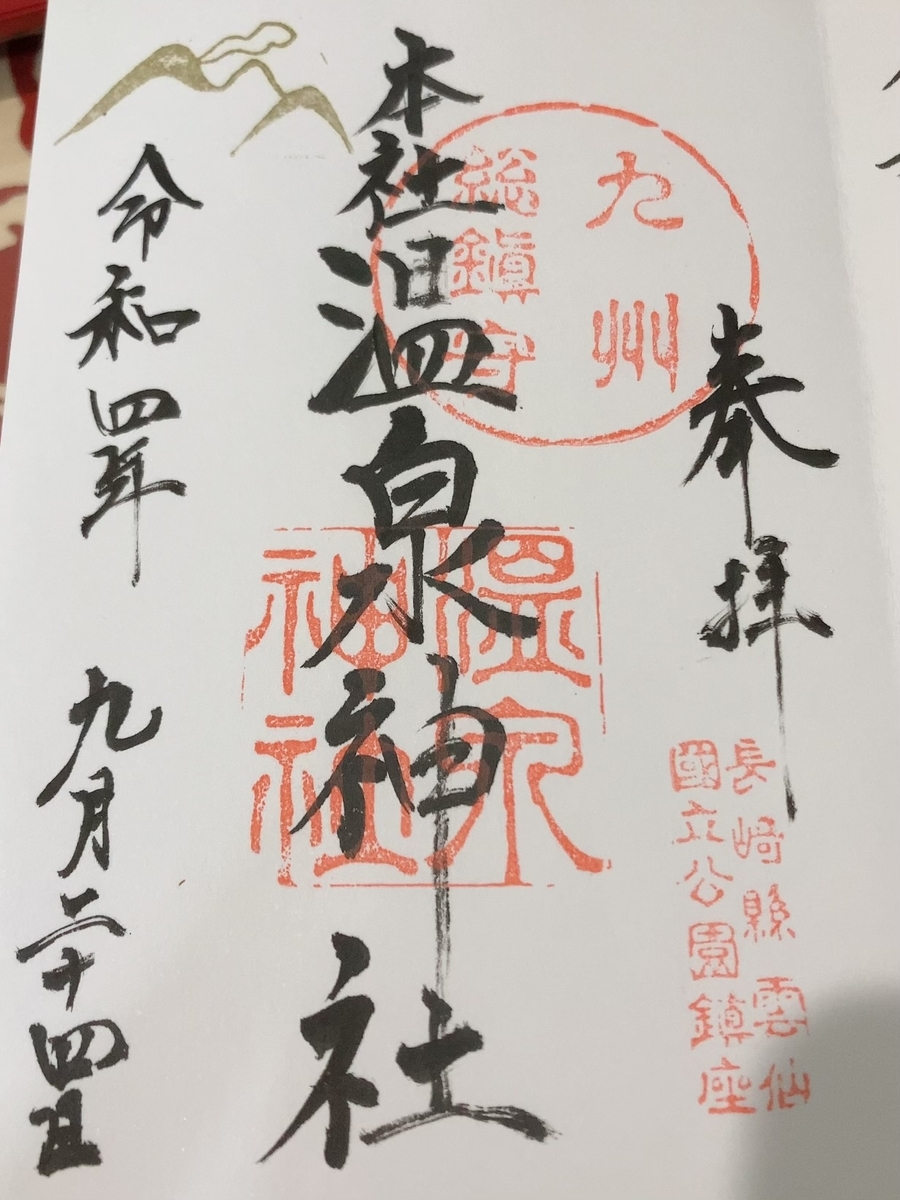 奉拝
九州
総鎮守
長崎縣雲仙
國立公園鎮座
本社温泉神社
温泉
神社
令和四年 九月二十四日